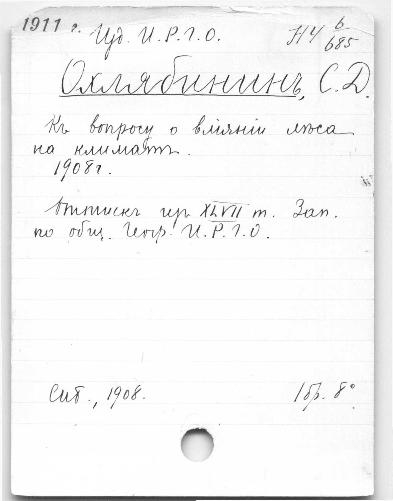 1911 г. Изд. И.Р.Г.О. Н4 6/685
Охлябининъ, С.Д.
Къ вопросу о вліяніи лѣса
на климатъ.
1908 г.
Оттискъ изъ XLVII т. Зап.
по общ. Геогр. И.Р.Г.О.
Спб., 1908. 1 бр. 8°